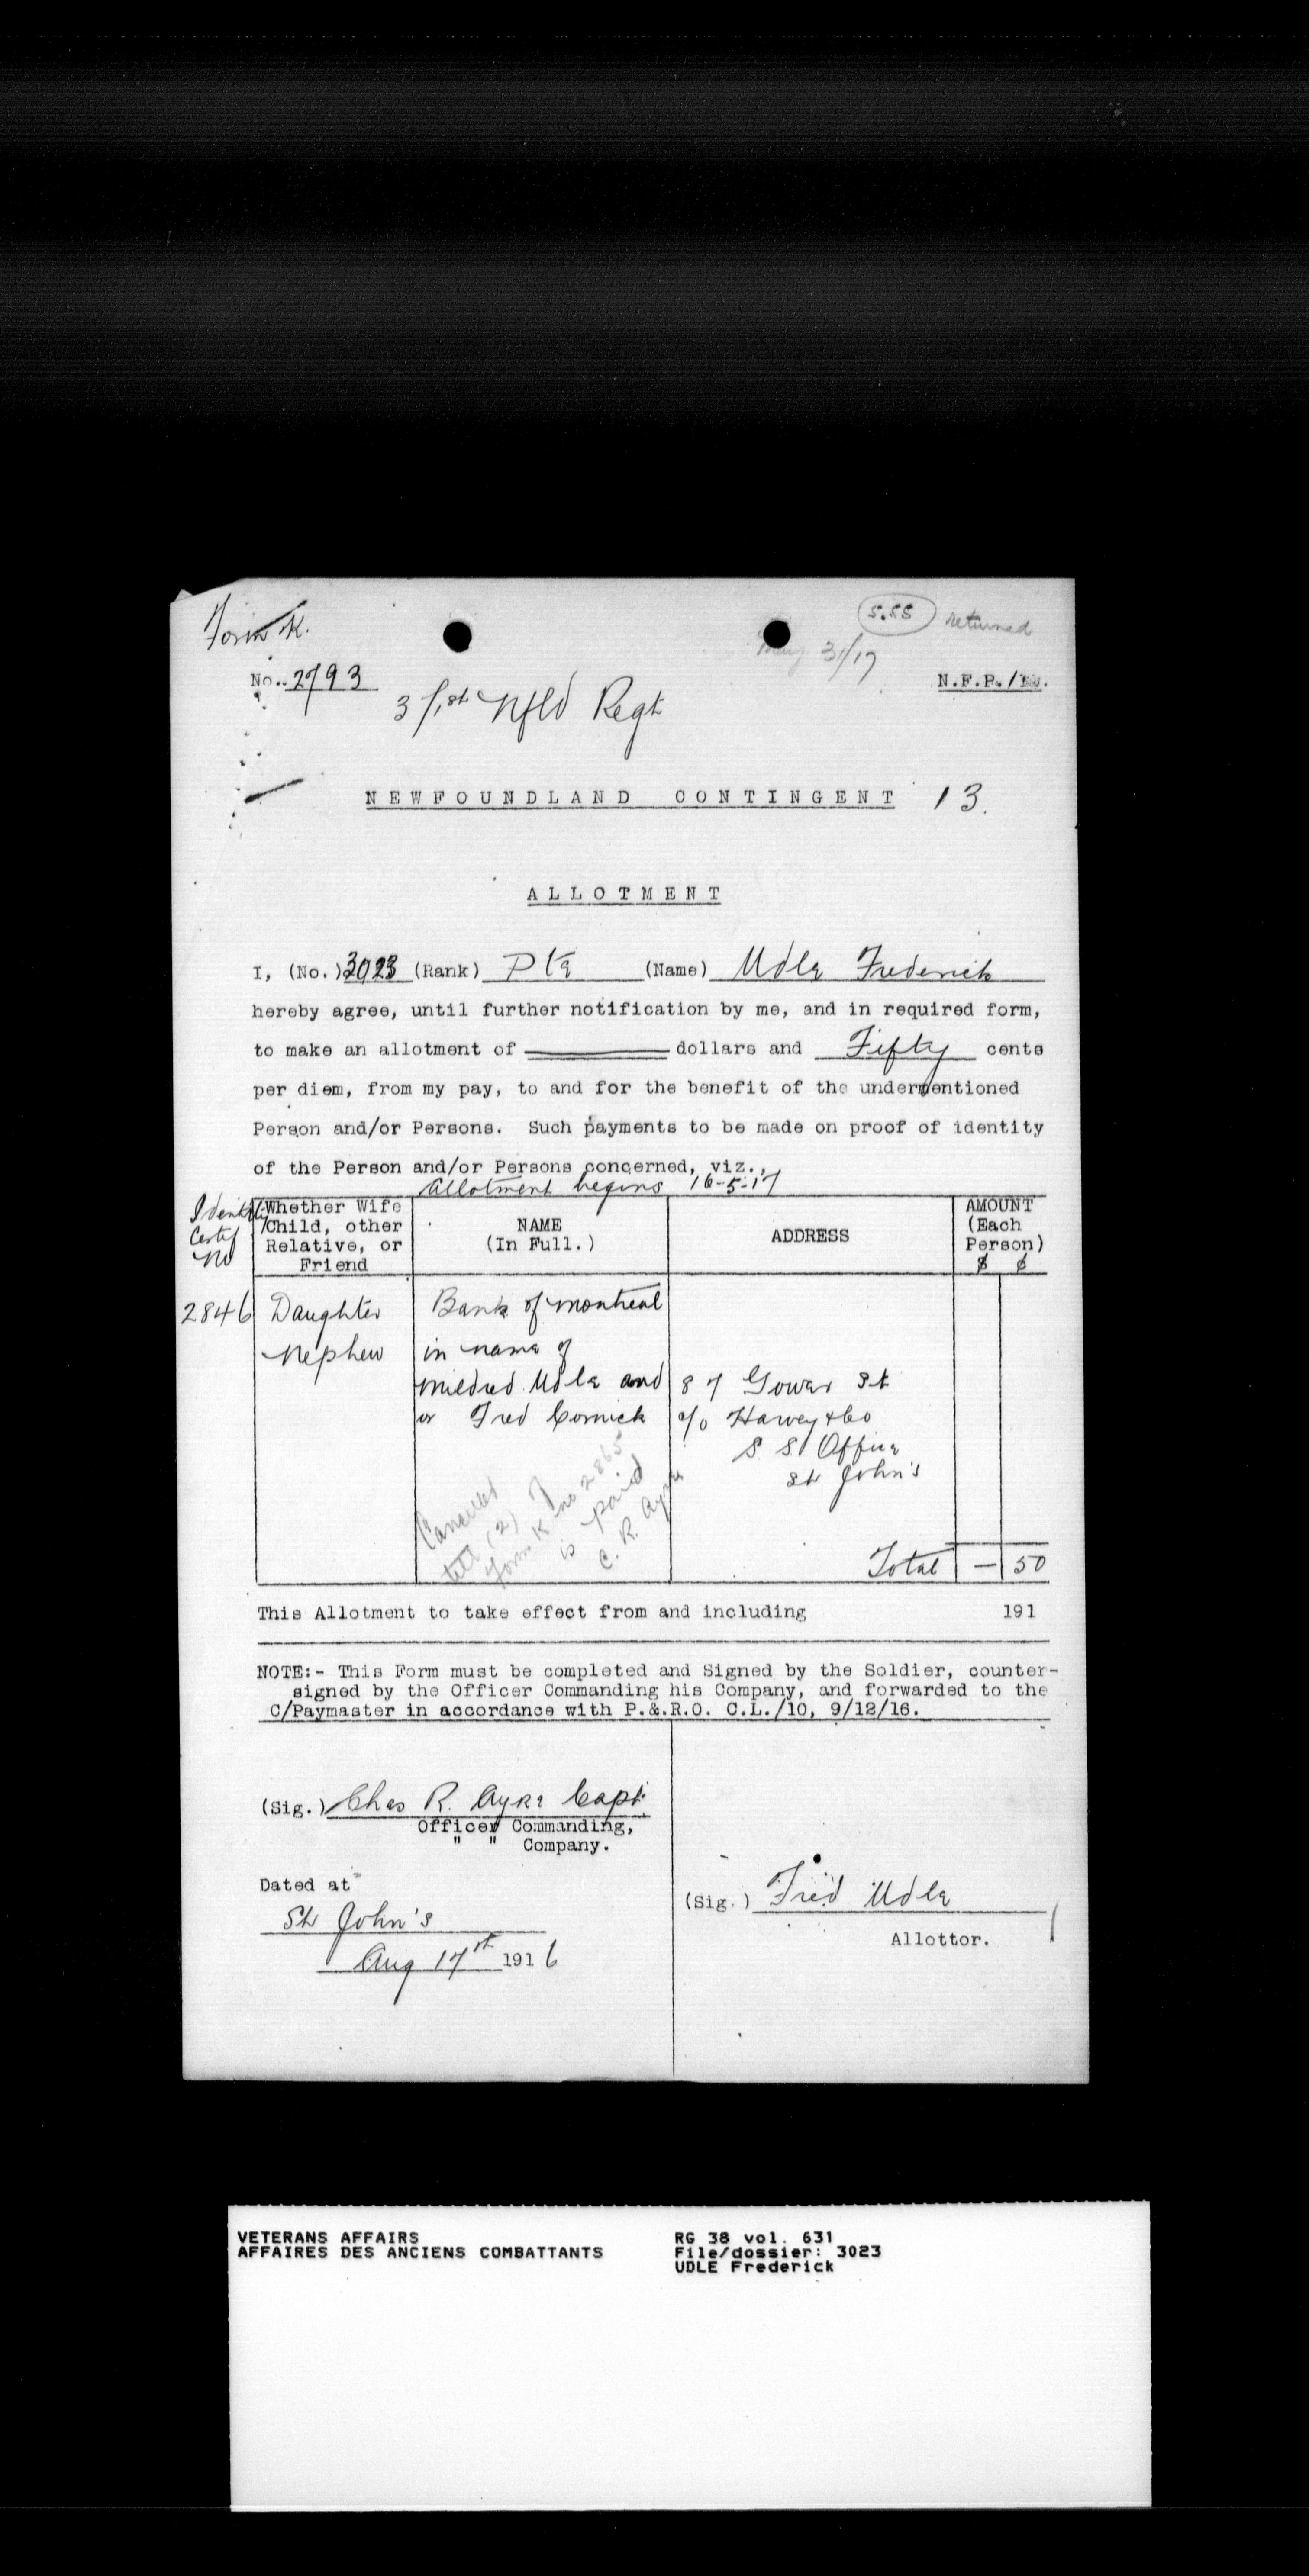 Form K.
5.55 returned
May 31/17
No. 2793
N.F.P./
3/1st Nfld Regt
NEWFOUNDLAND CONTINGENT 13.
ALLOTMENT
I, (No.) 3023 (Rank) Pte (Name) Udle Frederick
hereby agree, until further notification by me, and in required form,
to make an allotment of dollars and Fifty cents
per diem, from my pay, to and for the benefit of the undermentioned
Person and/or Persons. Such payments to be made on proof of identity
of the Person and/or Persons concerned, viz.,
Allotment begins 16-5-17
Identity
Certif
No
Whether Wife
Child, other
Relative, or
Friend
NAME
(In Full.)
ADDRESS
AMOUNT
(Each
Person)
$ ¢
2846 Daughter Bank of Montreal
Nephew in name of
Mildred Udle and 87 Gower St
or Fred Cornick c/o Harvey & Co
S. S. Office
St John's
Cancelled
till (2) of
form K no 2865
is paid
C. R. Ayre
Total — 50
This Allotment to take effect from and including 191
NOTE:- This Form must be completed and Signed by the Soldier, counter-
signed by the Officer Commanding his Company, and forwarded to the
C/Paymaster in accordance with P.&.R.O. C.L./10, 9/12/16.
(Sig.) Chas R. Ayre Capt
Officer Commanding,
" " Company.
Dated at
St John's
Aug 17st 1916
(Sig.) Fred Udle
Allottor.
VETERANS AFFAIRS
AFFAIRES DES ANCIENS COMBATTANTS
RG 38 vol. 631
File/dossier: 3023
UDLE Frederick